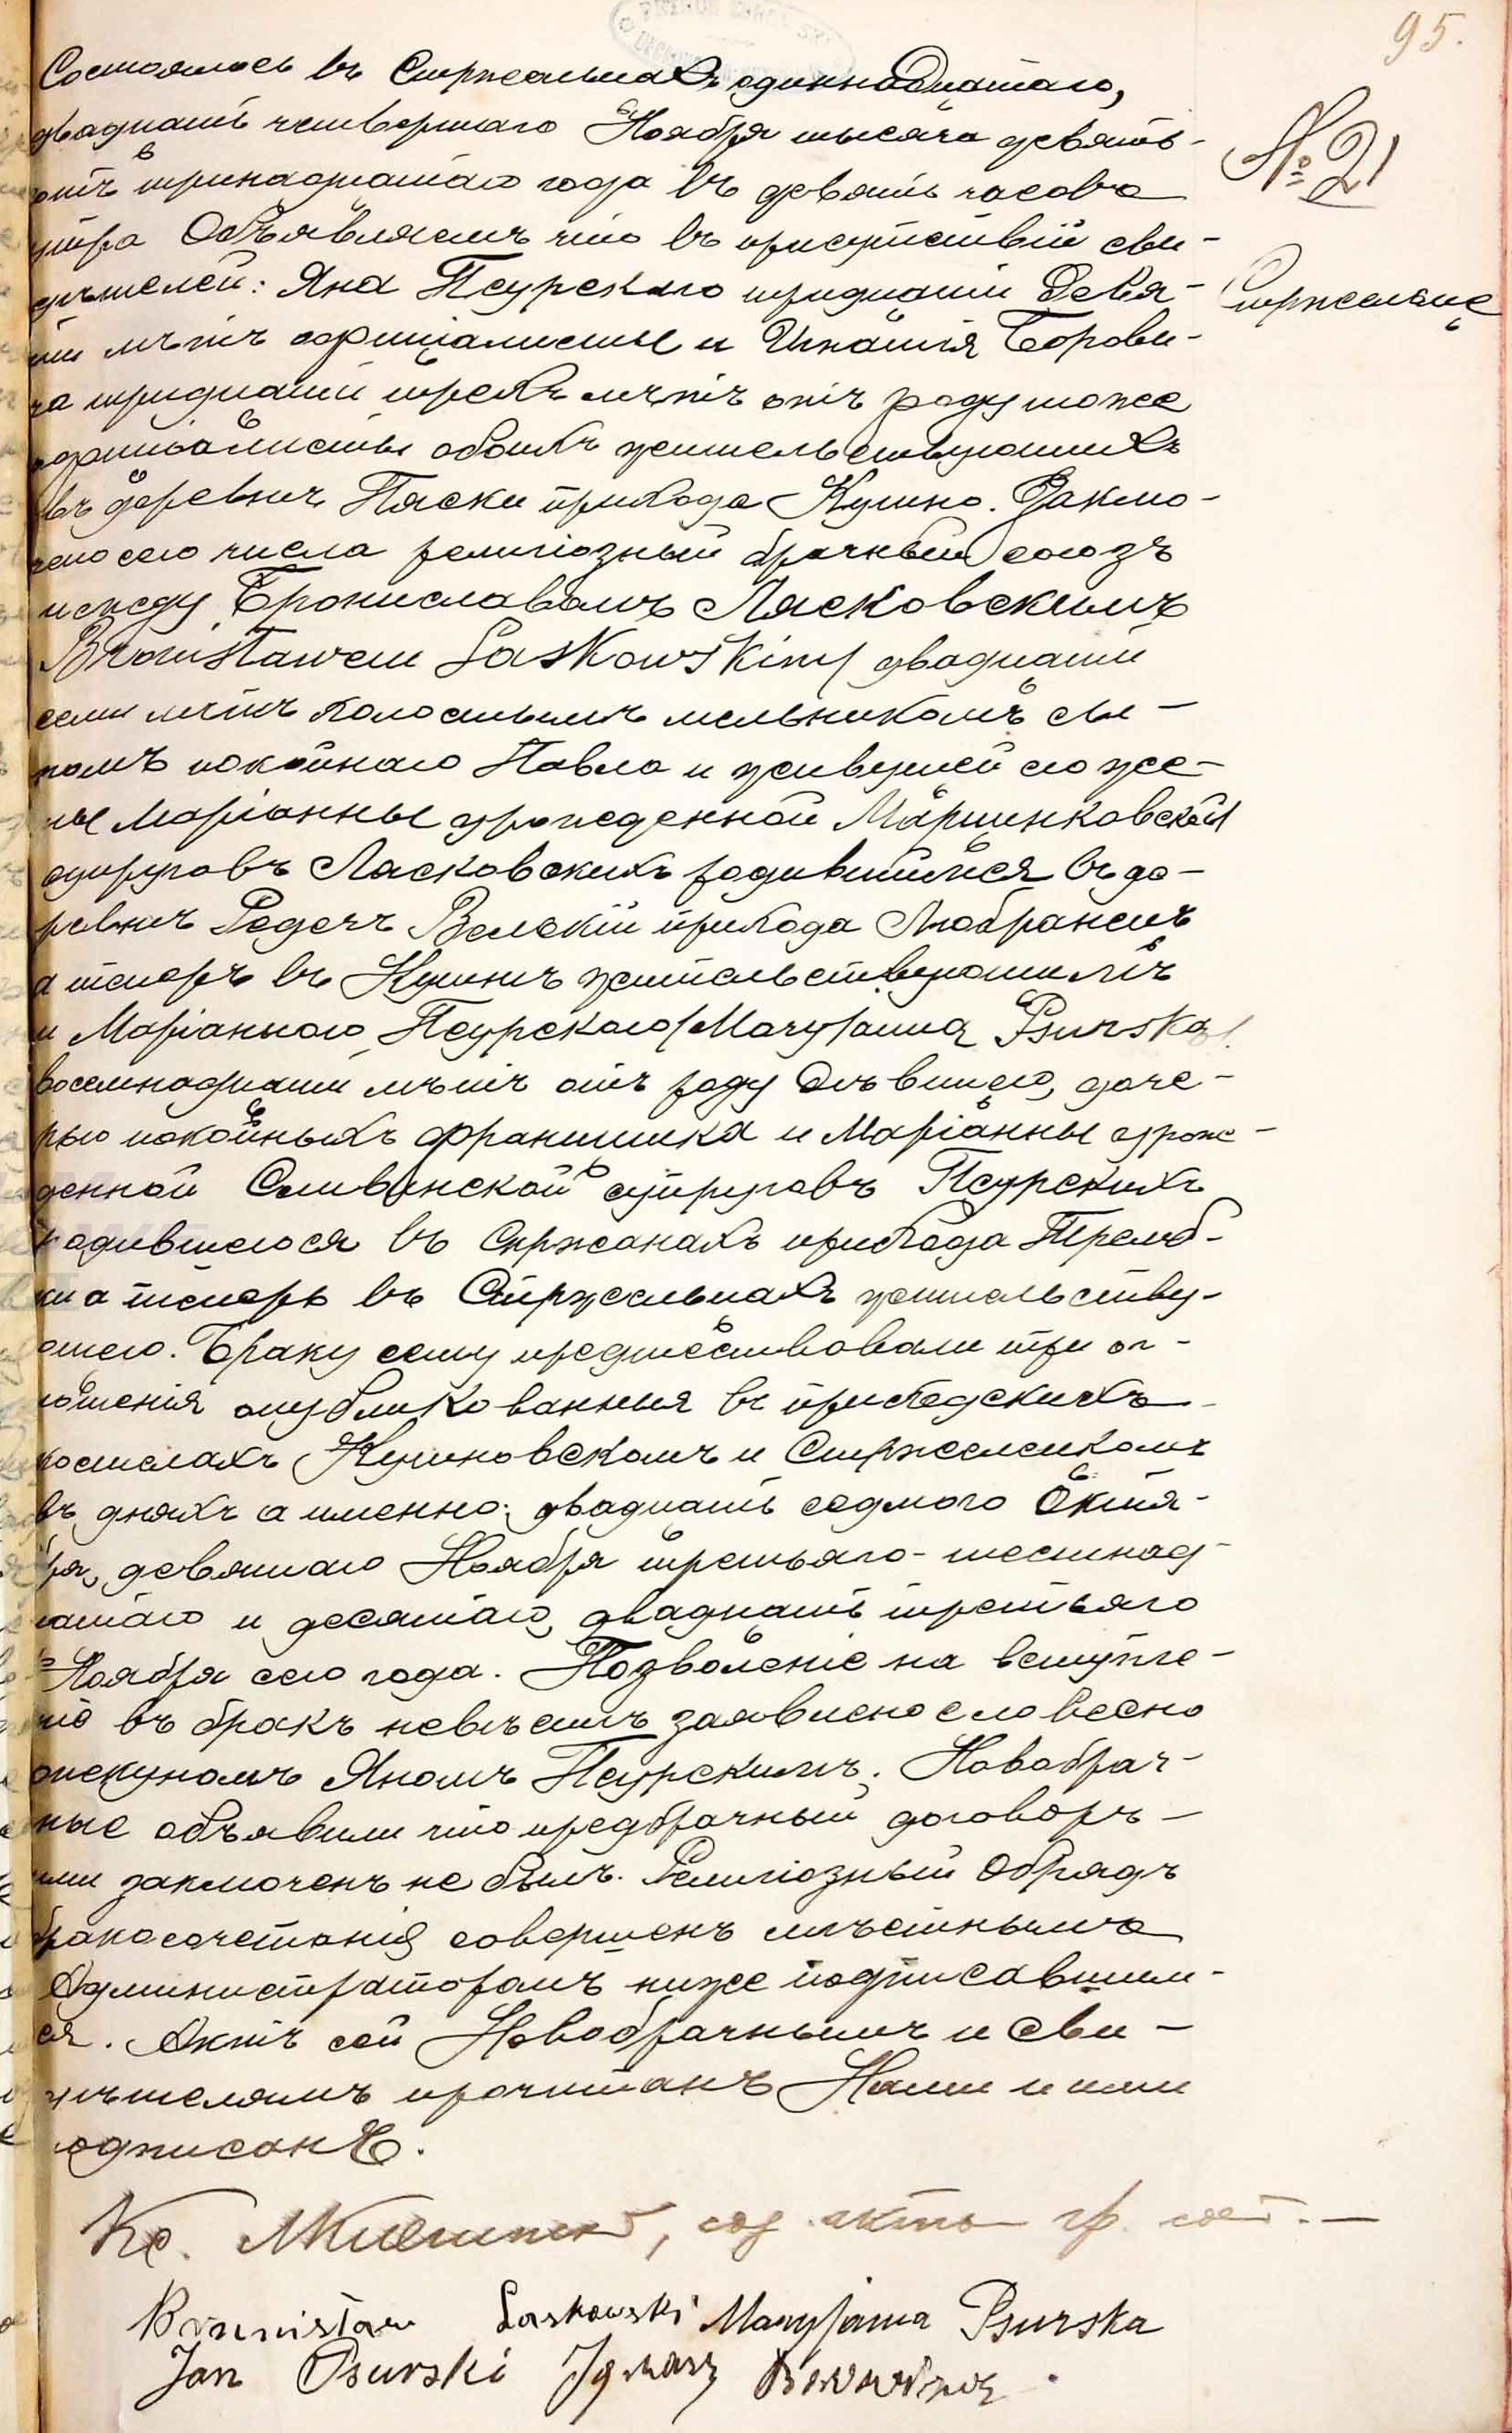 95.
Состоялось въ Стржельцахъ одиннадцатаго,
двадцать четвертаго Ноября тысяча девять-
отъ тринадцатаго года въ девять часовъ
утра Объявляемъ что въ присутствіи сви-
дѣтелей: Яна Псурскаго тридцати девя-
ти лѣтъ оффиціалисты и Игнатія Борови-
ча тридцати трехъ лѣтъ отъ роду тоже
оффиціалисты обоихъ жительствующихъ
въ деревнѣ Пяски прихода Кутно. Заклю-
чено сего числа религіозный брачный союзъ
между Брониславомъ Лясковскимъ
Bronisławem Laskowskim/ двадцати
семи лѣтъ холостымъ мельникомъ сы-
номъ покойнаго Павла и живущей его же-
ны Маріанны урожденной Марцинковской
супруговъ Лясковскихъ родившимся въ де-
ревнѣ Редечъ Вельскій прихода Любранецъ
а теперь въ Кутнѣ жительствующимъ
и Маріанною Псурскою/Maryjanna Psurska/
восемнадцати лѣтъ отъ роду дѣвицею, доче-
рью покойныхъ Францишка и Маріанны урож-
денной Сливинской супруговъ Псурскихъ
родившеюся въ Скржанахъ прихода Тремб-
ки а теперь въ Стржельцахъ жительству-
ющею. Браку сему предшествовали три ог-
лошенія опубликованныя въ приходскихъ
костелахъ Кутновскомъ и Стржелецкомъ
въ дняхъ а именно: двадцать седмого Октя-
бря, девятаго Ноября третьяго-шестнад-
цатаго и десятаго, двадцать третьяго
Ноября сего года. Позволеніе на вступле-
ніе въ бракъ невѣстѣ заявлено словесно
опекуномъ Яномъ Псурскимъ. Новобрач-
ные объявили что предбрачный договоръ-
ими заключенъ не былъ. Религіозный Обрядъ
бракосочетанія совершенъ мѣстнымъ
Администраторомъ ниже подписавшим-
ся. Актъ сей Новобрачнымъ и Сви-
дѣтелямъ прочитанъ Нами и ими
подписанъ.
Кс. сод. актъ гр. сост.—
Bronisław Laskowski Maryjanna Psurska
Jan Psurski Ignacy Borowicz.
№ 21
Стржельце